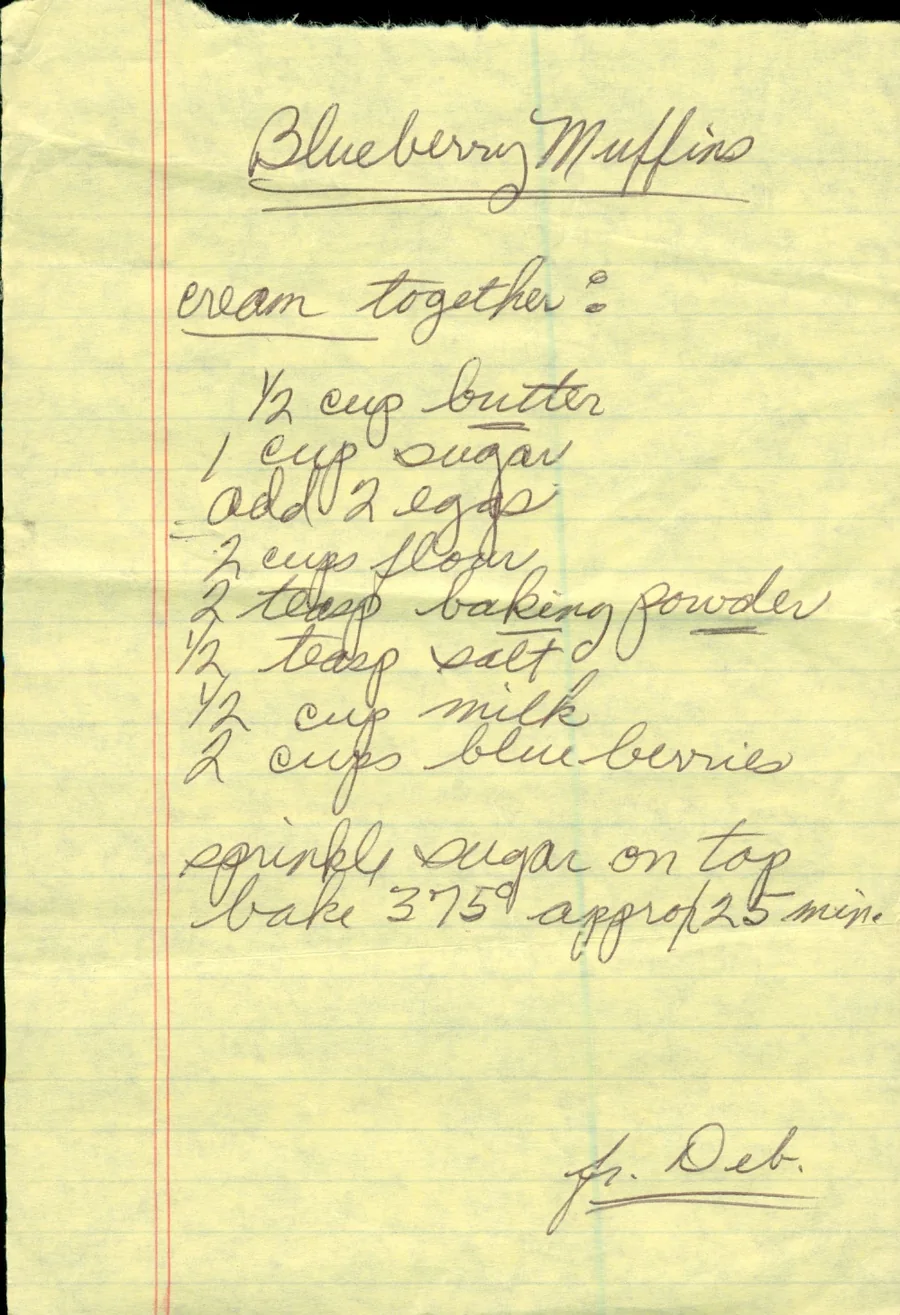 Blueberry Muffins
cream together:
1/2 cup butter
1 cup sugar
add 2 eggs
2 cups flour
2 teasp baking powder
1/2 teasp salt
1/2 cup milk
2 cups blueberries
sprinkle sugar on top
bake 375° approx 25 min.
fr. Deb.